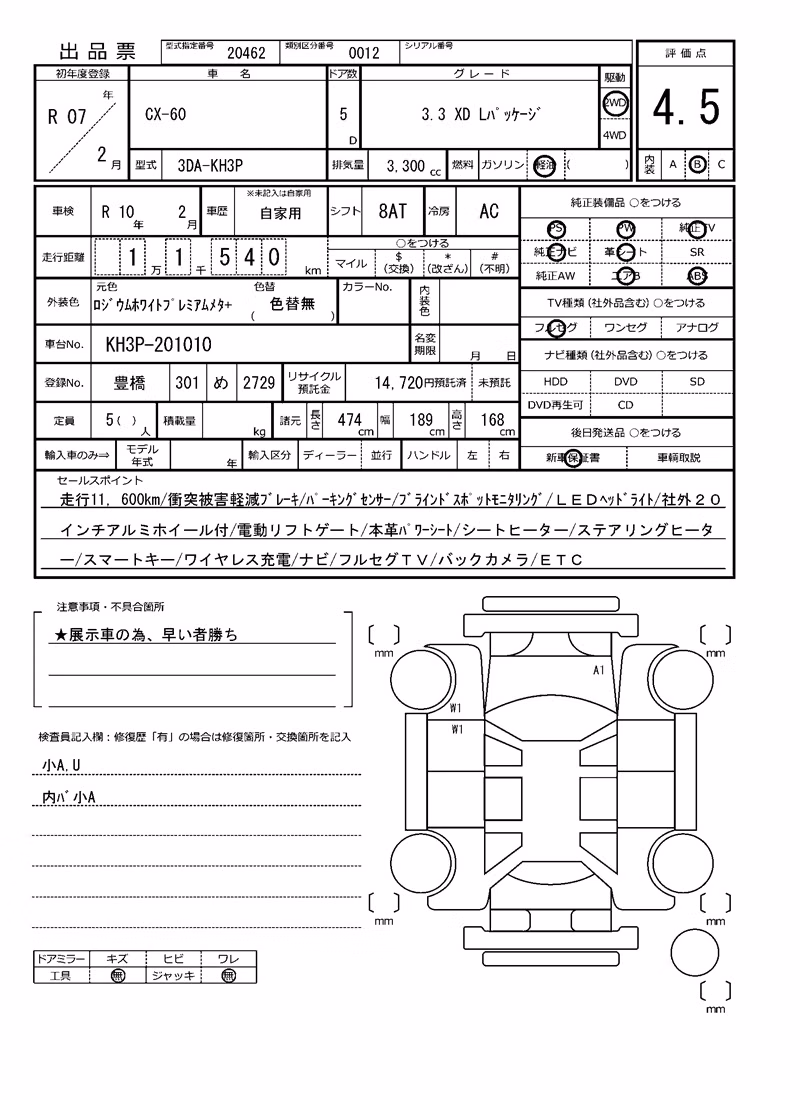 出品票 型式指定番号 20462 類別区分番号 0012 シリアル番号 評価点
初年度登録 車名 ドア数 グレード 駆動
R 07 年 2 月 CX-60 5 D 3.3 XD Lﾊﾟｯｹｰｼﾞ 2WD 4WD 4.5
型式 3DA-KH3P 排気量 3,300 cc 燃料 ガソリン 軽油 ( ) 内装 A B C
車検 R 10 年 2 月 車歴 ※未記入は自家用 自家用 シフト 8AT 冷房 AC
走行距離 1 万 1 千 5 4 0 km ○をつける マイル $ (交換) * (改ざん) # (不明)
外装色 元色 ﾛｼﾞｳﾑﾎﾜｲﾄﾌﾟﾚﾐｱﾑﾒﾀ+ 色替 ( 色替無 ) カラーNo. 内装色
車台No. KH3P-201010 名変期限 月 日
登録No. 豊橋 301 め 2729 リサイクル預託金 14,720円預託済 未預託
定員 5 ( ) 人 積載量 kg 諸元 長さ 474 cm 幅 189 cm 高さ 168 cm
輸入車のみ⇒ モデル年式 年 輸入区分 ディーラー 並行 ハンドル 左 右
純正装備品 ○をつける
PS PW 純正TV
純正ナビ 革シート SR
純正AW エアB ABS
TV種類 (社外品含む) ○をつける
フルセグ ワンセグ アナログ
ナビ種類 (社外品含む) ○をつける
HDD DVD SD
DVD再生可 CD
後日発送品 ○をつける
新車保証書 車輌取説
セールスポイント
走行11，600km/衝突被害軽減ﾌﾞﾚｰｷ/ﾊﾟｰｷﾝｸﾞｾﾝｻｰ/ﾌﾞﾗｲﾝﾄﾞｽﾎﾟｯﾄﾓﾆﾀﾘﾝｸﾞ/ＬＥＤﾍｯﾄﾞﾗｲﾄ/社外２０
インチアルミホイール付/電動リフトゲート/本革ﾊﾟﾜｰシート/シートヒーター/ステアリングヒータ
ー/スマートキー/ワイヤレス充電/ナビ/フルセグＴＶ/バックカメラ/ＥＴＣ
注意事項・不具合箇所
★展示車の為、早い者勝ち
mm mm
A1
W1
W1
検査員記入欄：修復歴「有」の場合は修復箇所・交換箇所を記入
小A,U
内ﾊﾞ小A
mm mm
ドアミラー キズ ヒビ ワレ
工具 無 ジャッキ 無
mm